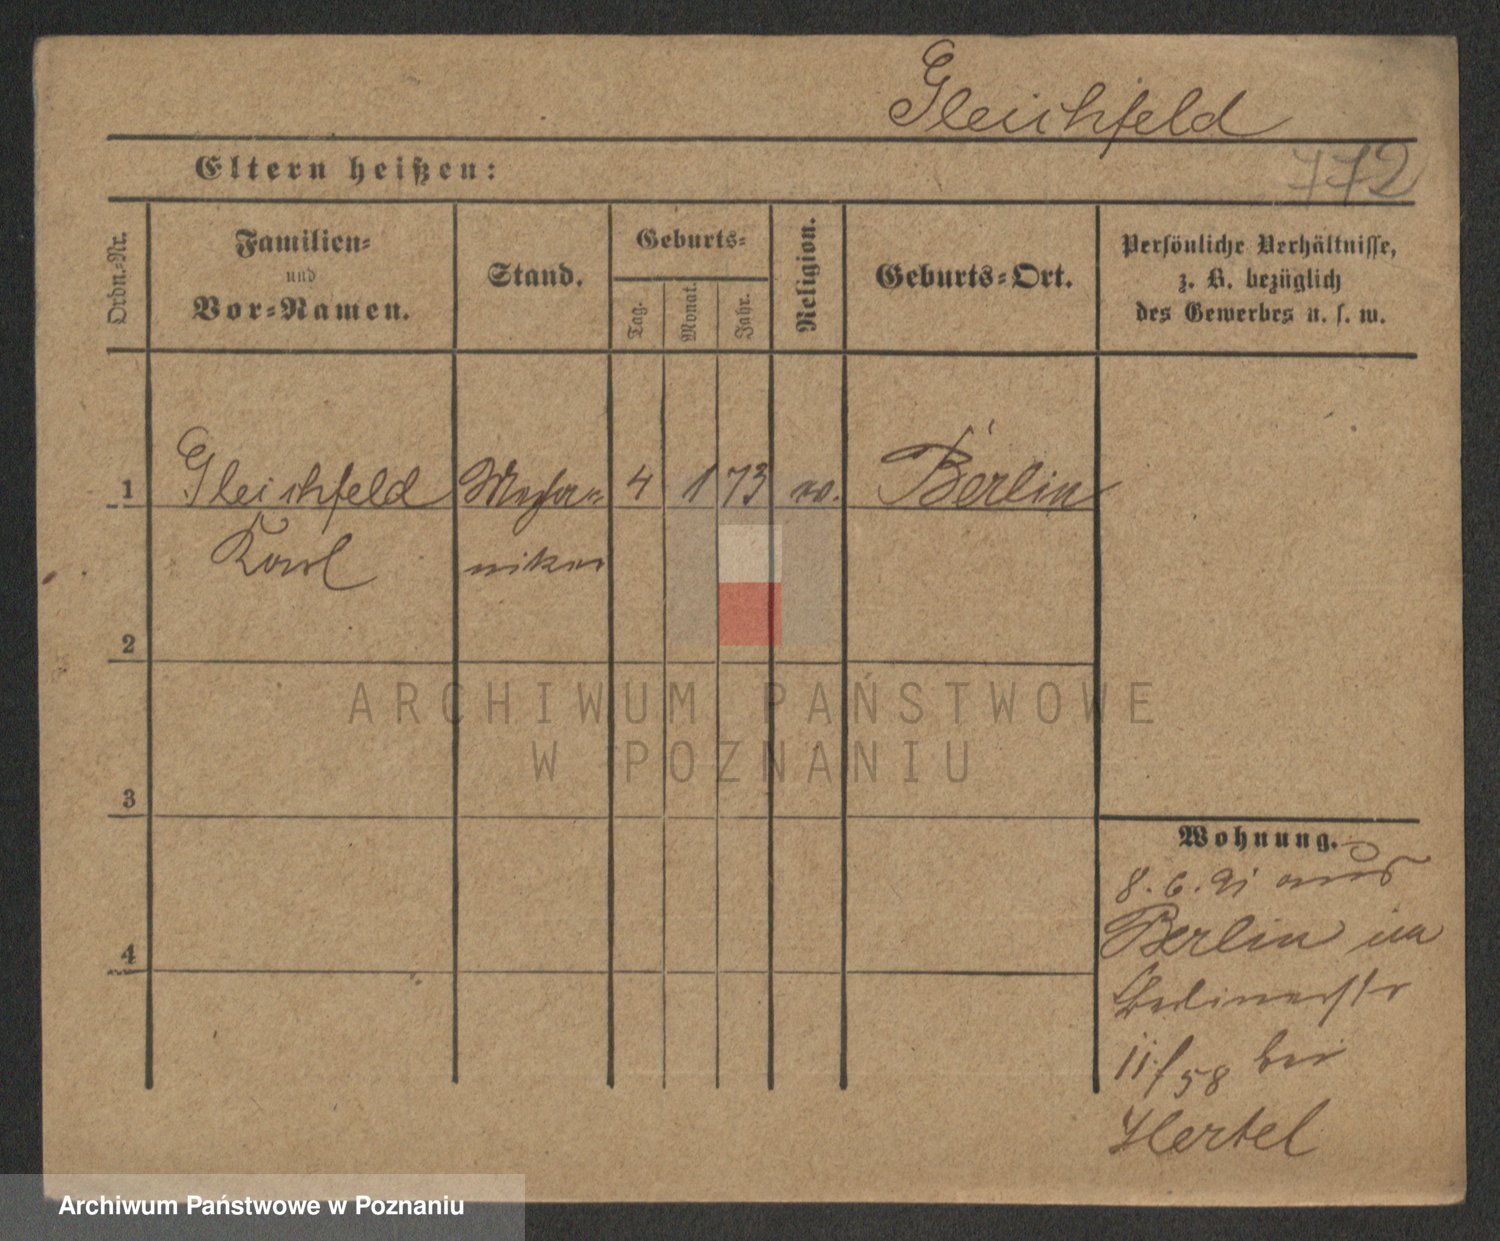 Gleichfeld
772
Eltern heißen:
Ordn.-Nr.
Familien-
und
Vor-Namen.
Stand.
Geburts-
Tag.
Monat.
Jahr.
Religion.
Geburts-Ort.
Persönliche Verhältnisse,
z. B. bezüglich
des Gewerbes u. s. w.
1 Gleichfeld Mecha- 4 1 73 ev. Berlin
Karl niker
2
ARCHIWUM PAŃSTWOWE
W POZNANIU
3
Wohnung.
8. 6. 91 aus
Berlin in
4
Berlinerstr
11/58 bei
Hertel
Archiwum Państwowe w Poznaniu